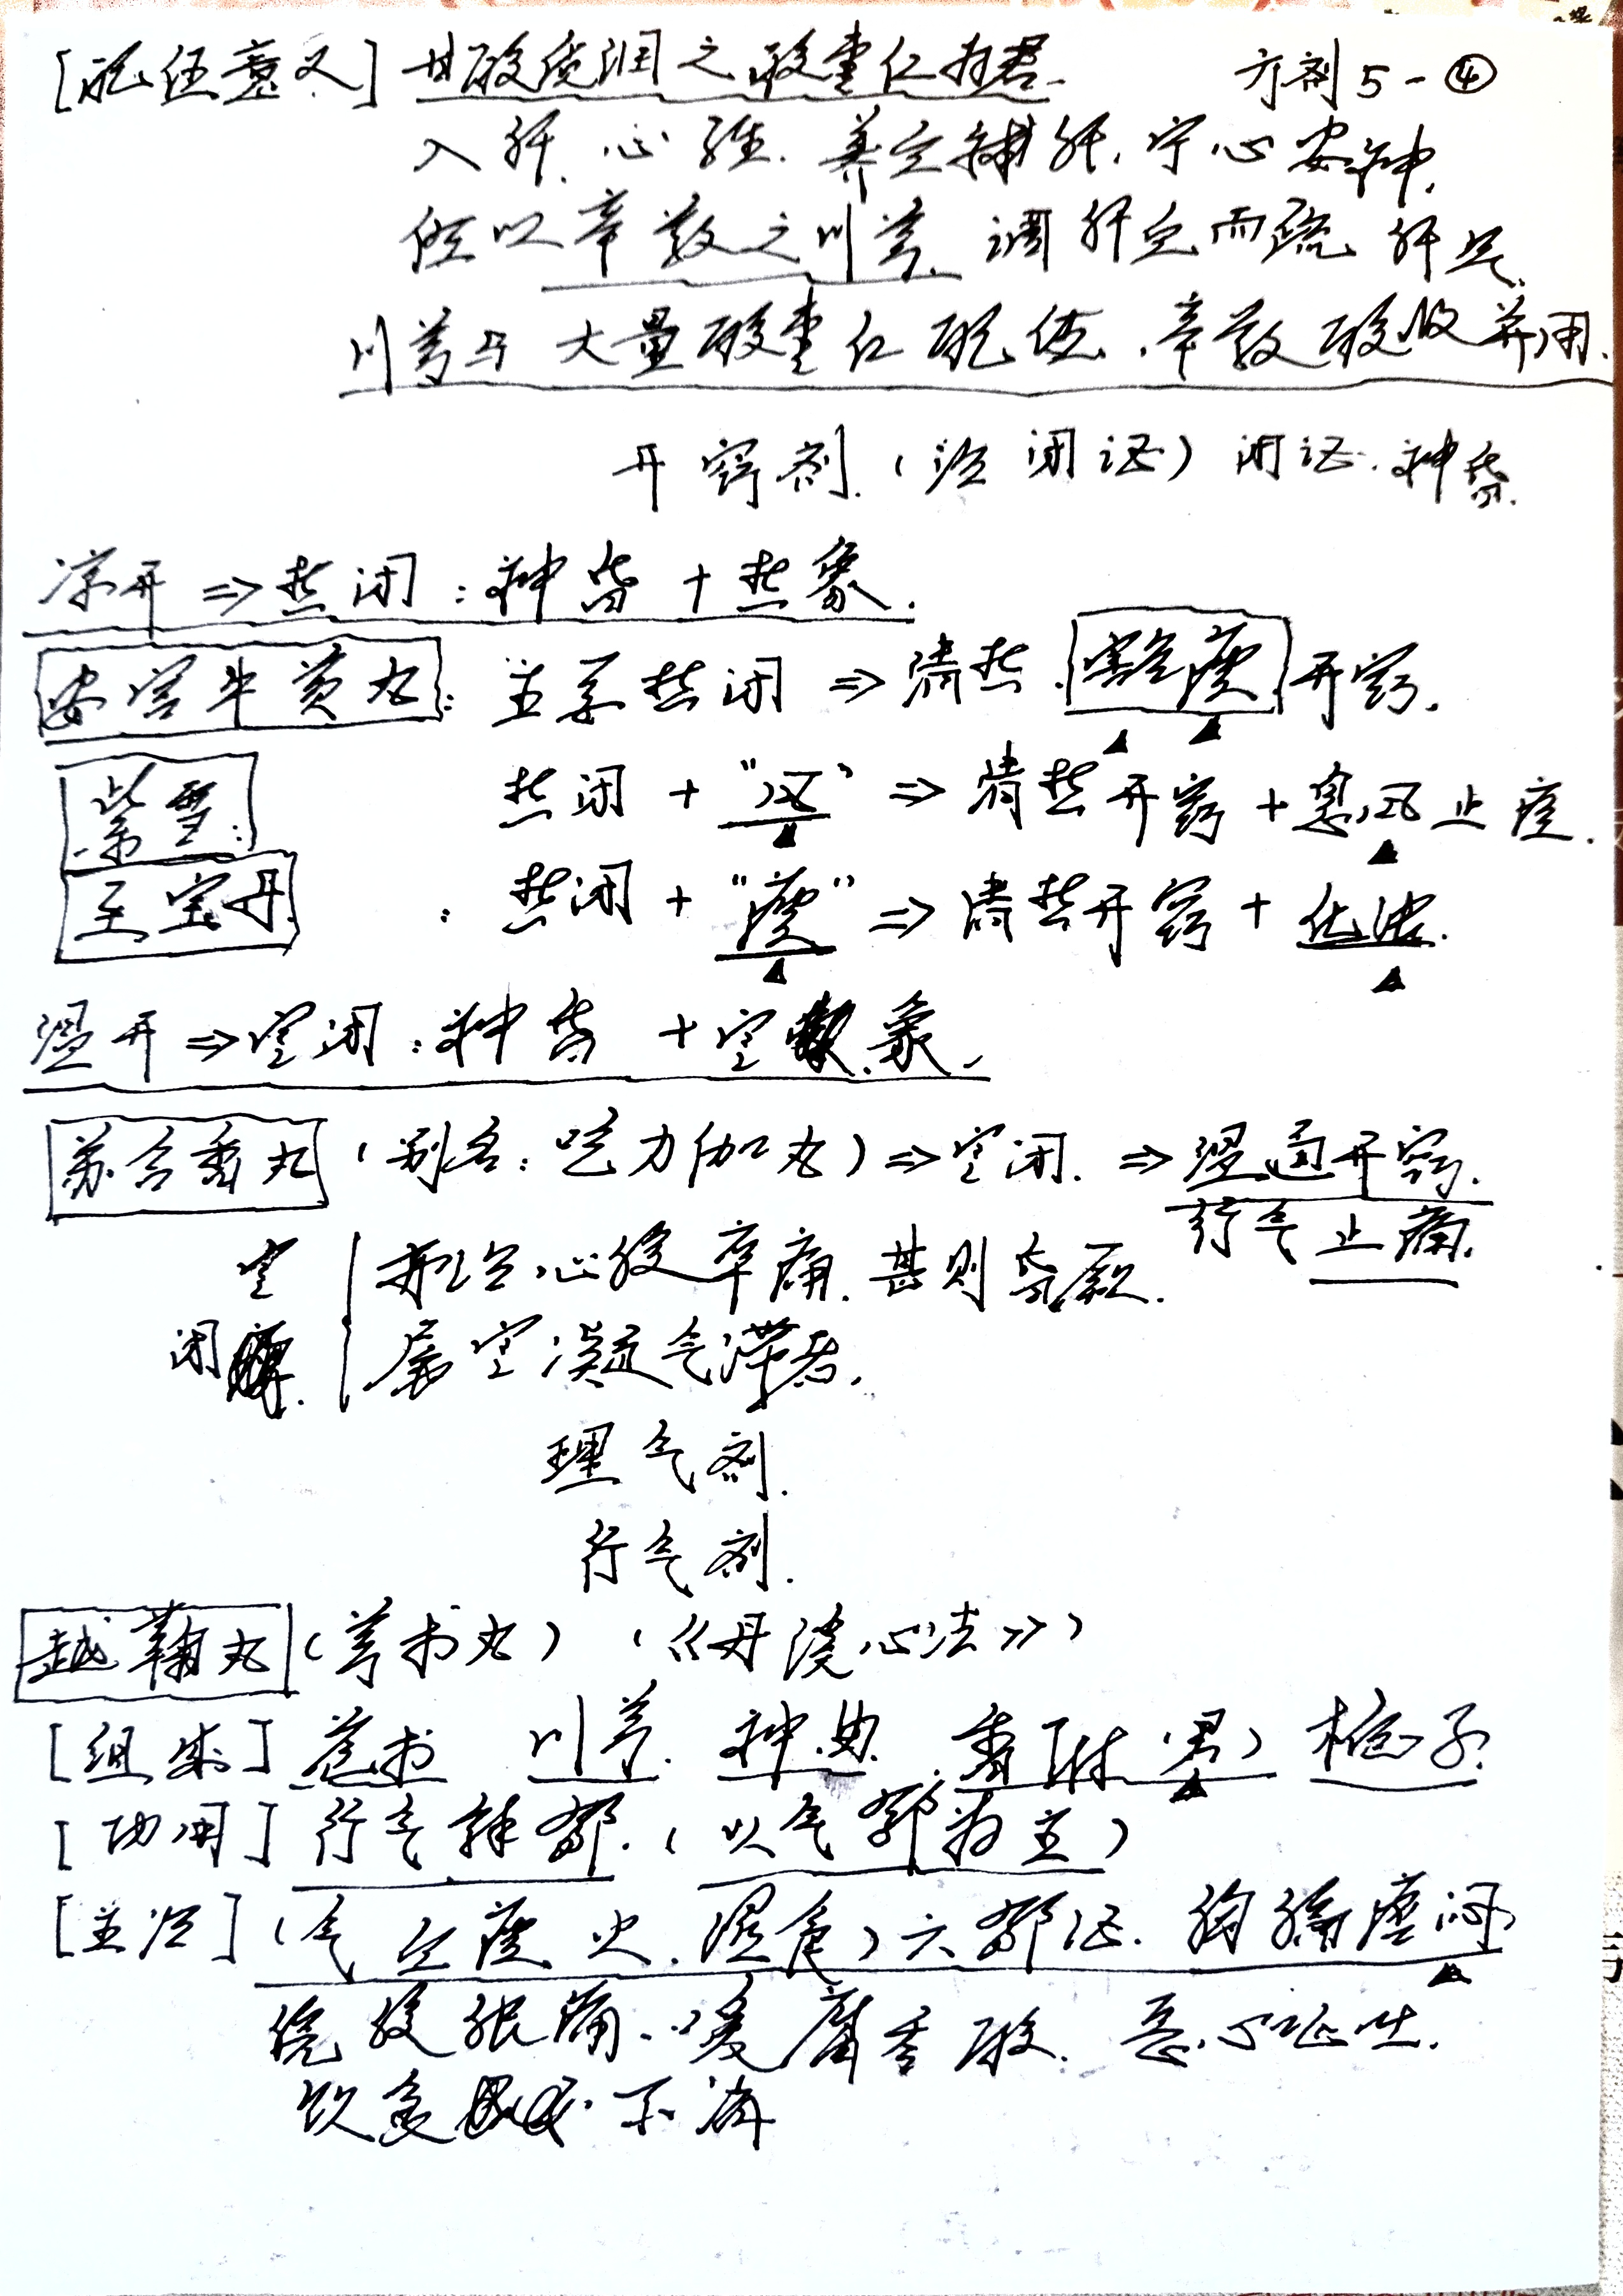 [配伍意义] 甘酸质润之酸枣仁为君. 方剂5-④
入肝、心经. 养血补肝. 宁心安神.
伍以辛散之川芎. 调肝血而疏肝气.
川芎与大量酸枣仁配伍. 辛散酸收并用.
开窍剂.(治闭证)闭证.神昏.
凉开⇒热闭:神昏+热象.
安宫牛黄丸: 主系热闭⇒清热.豁痰.开窍.
紫雪: 热闭+"风"⇒清热开窍+息风止痉.
至宝丹: 热闭+"痰"⇒清热开窍+化浊.
温开⇒寒闭:神昏+寒象.
苏合香丸(别名:吃力伽丸)⇒寒闭.⇒温通开窍.
行气止痛.
寒 亦治心腹卒痛.甚则昏厥.
闭. 属寒凝气滞者.
理气剂.
行气剂.
越鞠丸(芎术丸)(《丹溪心法》)
[组成] 苍术 川芎. 神曲. 香附(君) 栀子.
[功用] 行气解郁.(以气郁为主)
[主治] (气 血 痰 火.湿食)六郁证.胸膈痞闷
脘腹胀痛.嗳腐吞酸.恶心呕吐.
饮食不消